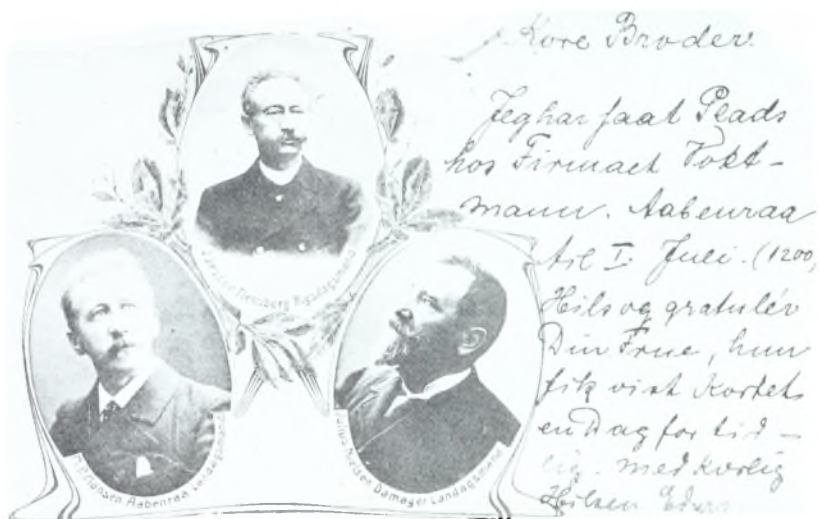 Kære Broder.
Jeg har faat Plads
hos Firmaet Vokt-
mann. Aabenraa
til 1. Juli. (1200,
Hils og gratulér
Din Frue, hun
fik vist Kortet
en Dag for tid-
lig. med kærlig
Hilsen
Flensborg Rigsdagsmand
H. P. Hansen. Aabenraa. Landdagsmand
Julius Nielsen. Damager Landdagsmand